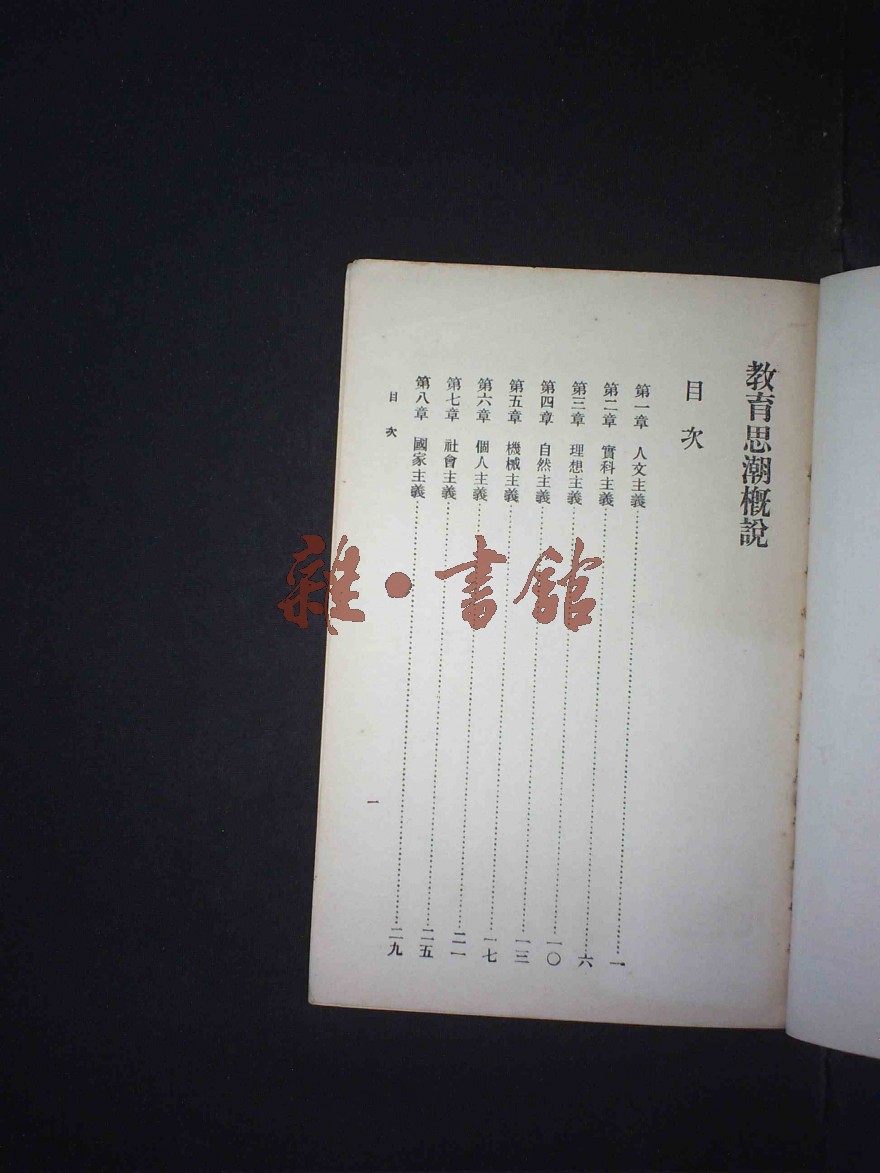 教育思潮概說
目次
第一章 人文主義……一
第二章 實科主義……六
第三章 理想主義……一〇
第四章 自然主義……一三
第五章 機械主義……一七
第六章 個人主義……二一
第七章 社會主義……二五
第八章 國家主義……二九
目次
一
雜·書館